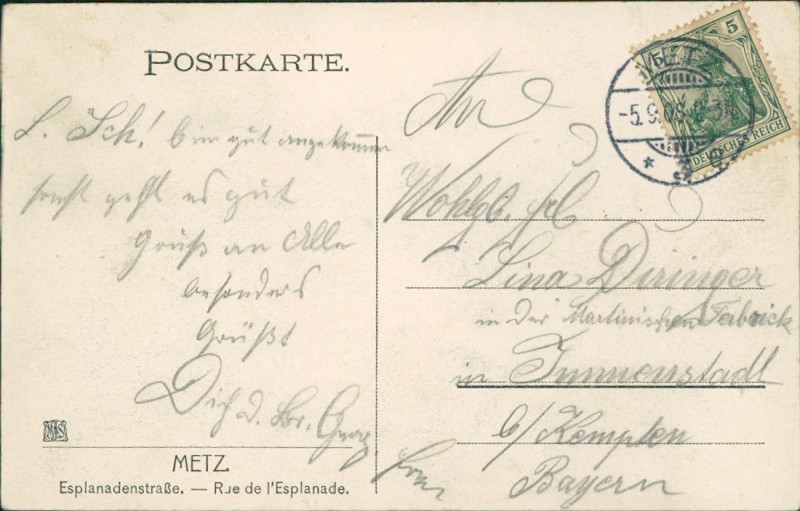 POSTKARTE.
L. Sch! bin gut angekommen
sonst geht es gut
Gruß an Alle
besonders
Grüßt
Dich d. Br. Georg
METZ
Esplanadenstraße. — Rue de l'Esplanade.
5
DEUTSCHES REICH
METZ
-5.9.
An
Wohlgb. Frl
Lina Deringer
in der Martinischen Fabrick
in Immenstadt
b/Kempten
Bayern